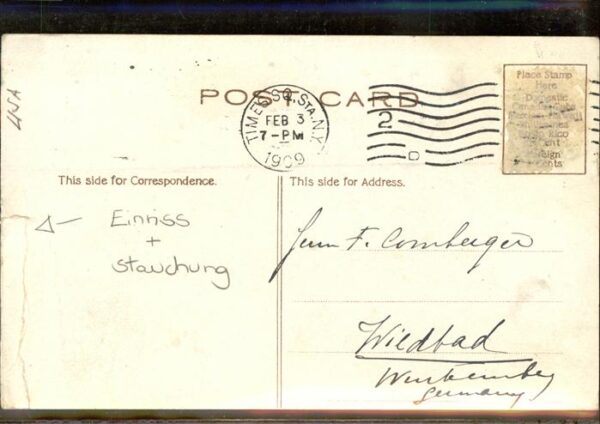 USA
POST CARD
TIMES SQ. STA. N.Y.
FEB 3
7-PM
1909
2
D
Place Stamp
Here
Domestic
This side for Correspondence.
This side for Address.
Einriss
+
Stauchung
Herrn F. Comberger
Wildbad
Württemberg
Germany